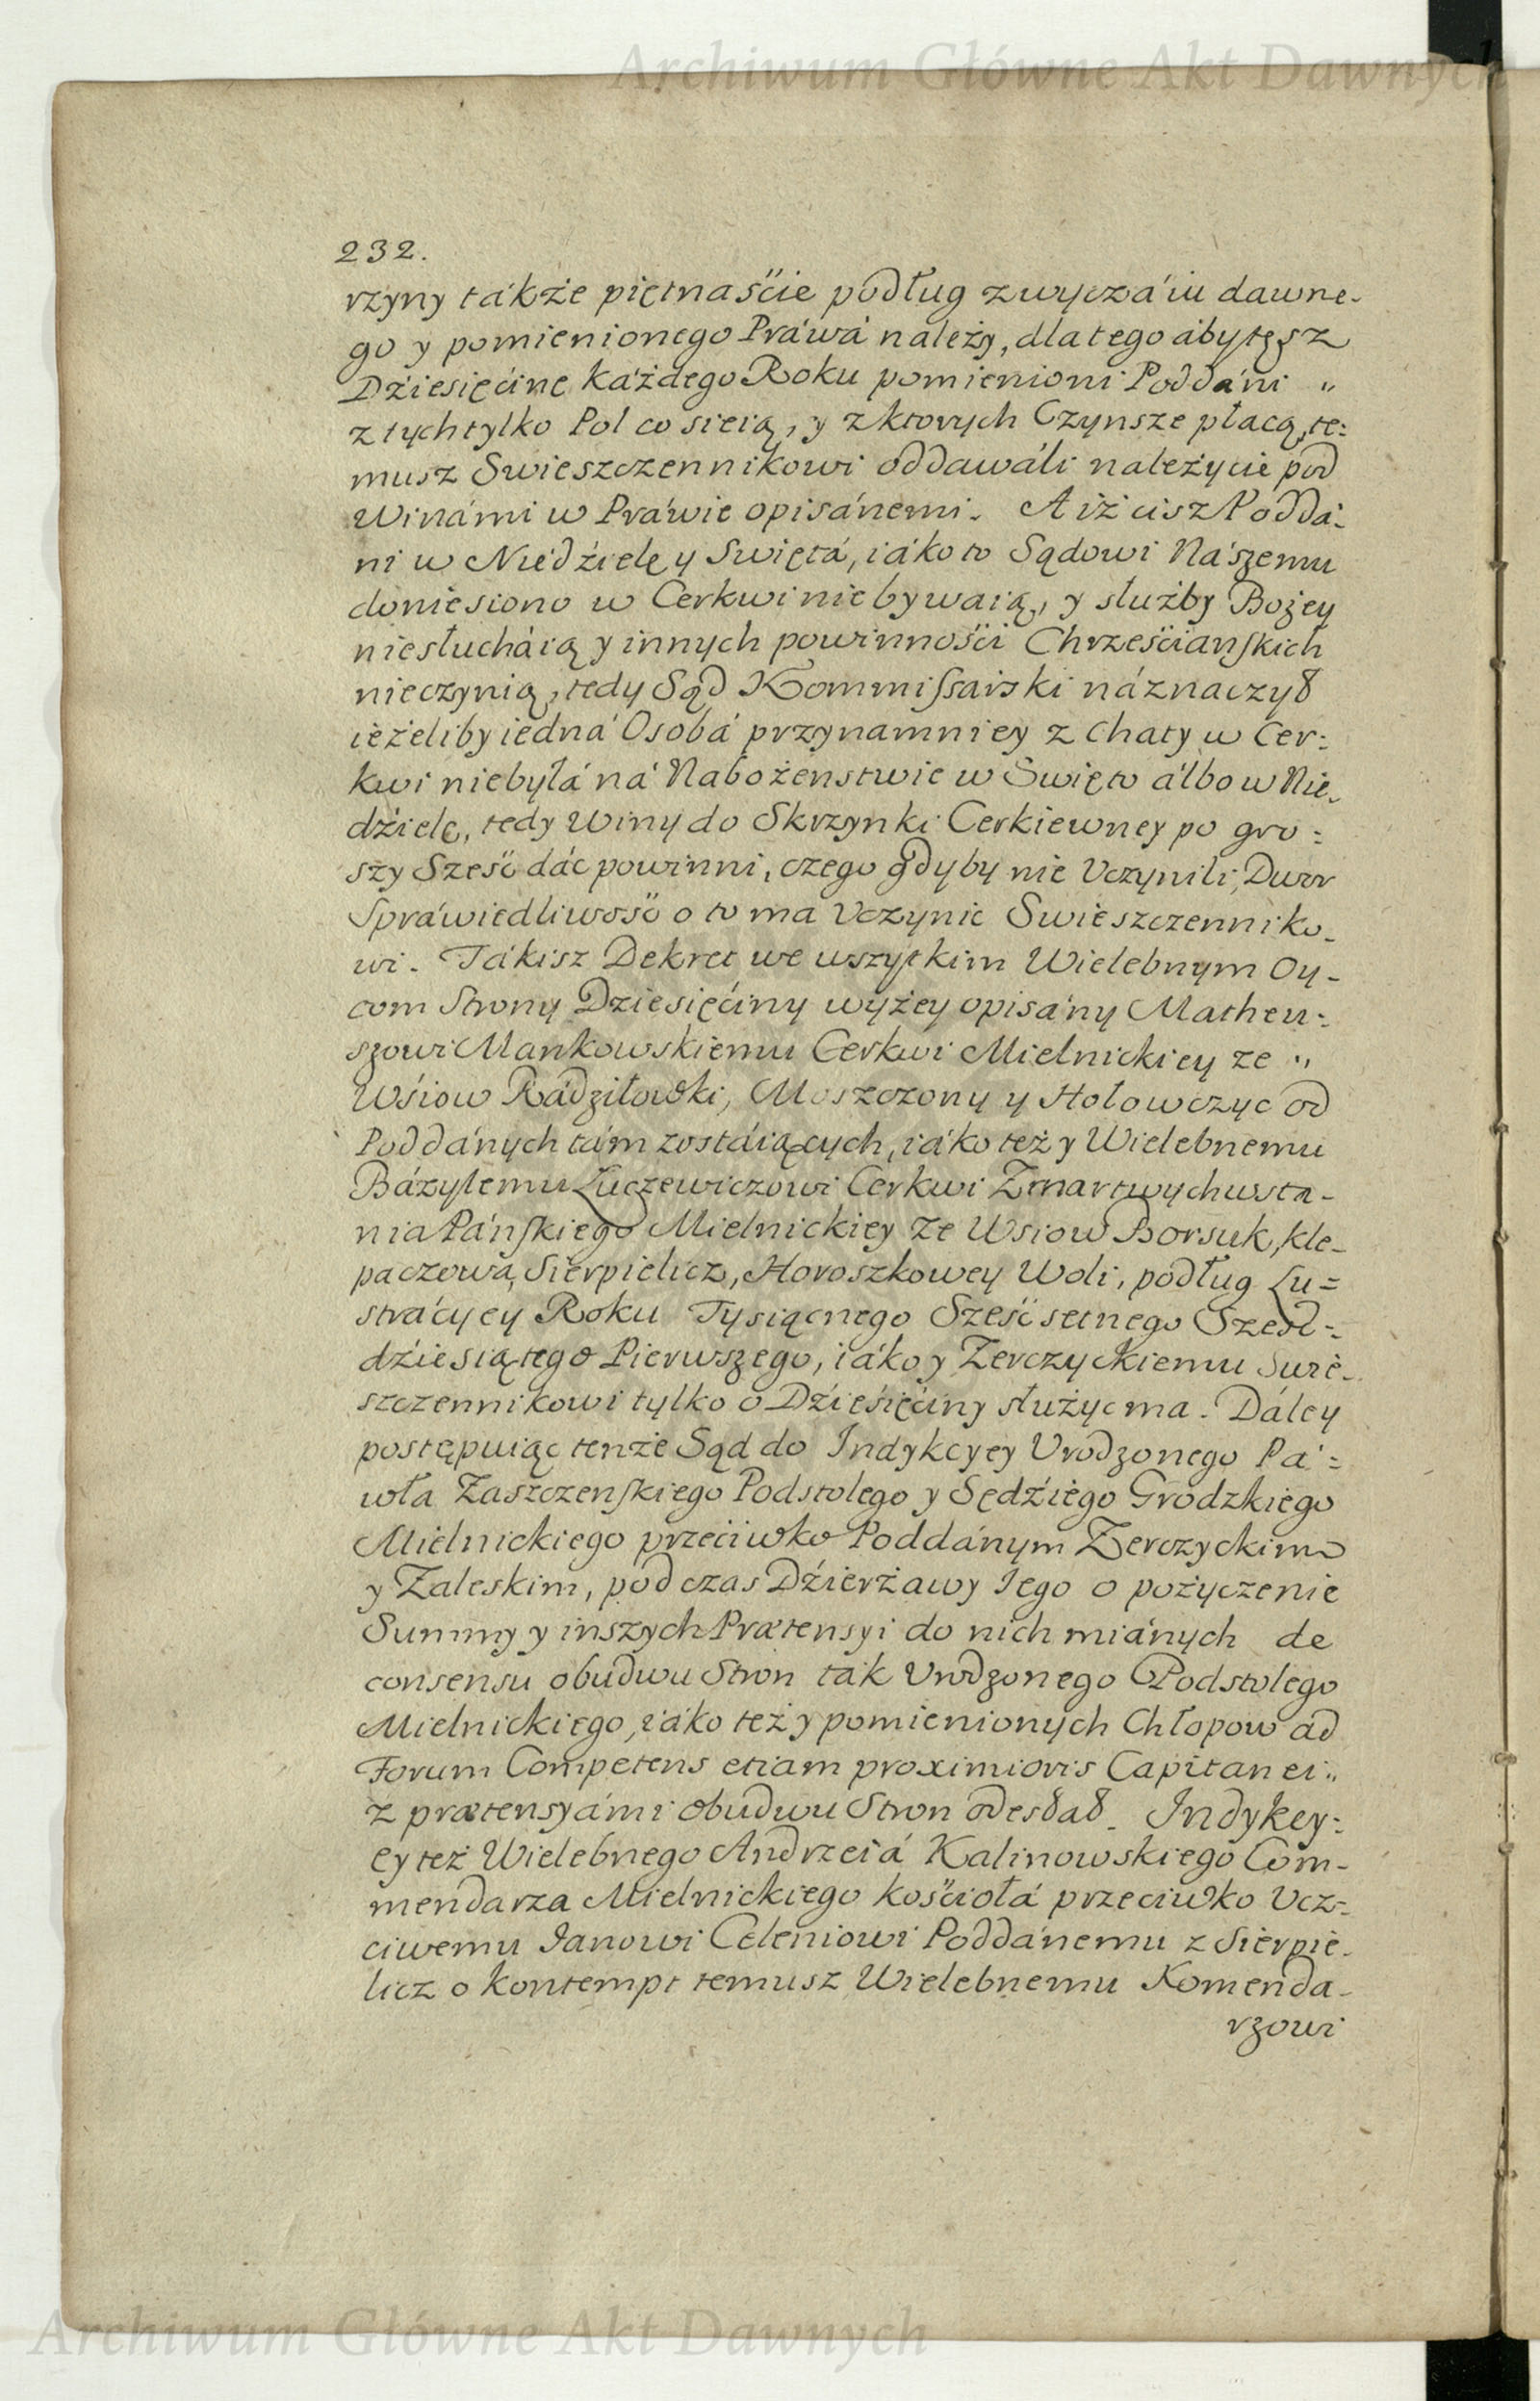 Archiwum Główne Akt Dawnych
232.
rzyny tákże piętnaście podług zwyczáiu dawne-
go y pomienionego Práwá należy, dlatego ábytęsz
Dźiesięćinę káżdego Roku pomienioni Poddáni "
z tych tylko Pol co sieią, y z ktorych Czynsze płacą, te:
musz Swieszczennikowi oddawáli należycie pod
Winámi w Práwie opisánemi. A iż cisz Poddá-
ni w Niedźielę y Swiętá, iáko to Sądowi Nászemu
doniesiono w Cerkwi nie bywaią, y służby Bożey
niesłucháią y innych powinności Chrześcianskich
nieczynią, tedy Sąd Kommissarski náznaczył
ieżeliby iedná Osobá przynamniey z Chaty w Cer:
kwi niebyłá ná Nabożenstwie w Swięto álbo w Nie-
dźielę, tedy Winy do Skrzynki Cerkiewney po gro:
szy Sześć dáć powinni, czego gdyby nie Vczynili, Dwor
Spráwiedliwość o to ma Vczynic Swieszczenniko-
wi. Tákisz Dekret we wszytkim Wielebnym Oy-
com Strony Dziesięćiny wyżey opisány Matheu:
szowi Mankowskiemu Cerkwi Mielnickiey ze "
Wśiow Rádziłowki, Moszczony y Hołowczyc od
Poddánych tám zostáiących, iáko też y Wielebnemu
Bázylemu Łuczewiczowi Cerkwi Zmartwychwsta-
nia Páńskiego Mielnickiey ze Wsiow Borsuk, Kle-
paczowa, Sierpielicz, Horoszkowey Woli, podług Lu=
strácyey Roku Tysiącnego Sześćsetnego Sześć-
dźiesiątego Pierwszego, iáko y Zerczyckiemu Swie-
szczennikowi tylko o Dźieśięćiny służyc ma. Dáley
postępuiąc tenże Sąd do Indykcyey Vrodzonego Pá=
wła Zaszczenskiego Podstolego y Sędźiego Grodzkiego
Mielnickiego przeciwko Poddánym Zerczyckim
y Zaleskim, pod czas Dźierżawy Iego o pożyczenie
Summy y inszych Prætensyi do nich miánych de
consensu obudwu Stron tak Vrodzonego Podstolego
Mielnickiego, iáko też y pomienionych Chłopow ad
Forum Competens etiam proximioris Capitanei "
z prætensyámi obudwu Stron odesłał. Indykcy:
ey też Wielebnego Andrzeiá Kalinowskiego Com-
mendarza Mielnickiego kościołá przeciwko Vcz-
ciwemu Ianowi Celeniowi Poddánemu z Sierpie-
licz o kontempt temusz Wielebnemu Komenda-
rzowi
Archiwum Główne Akt Dawnych